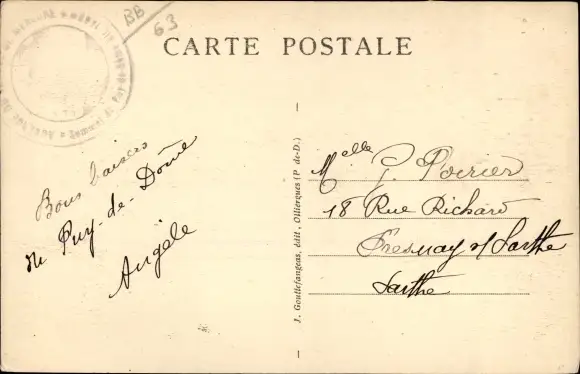 BB
63
CARTE POSTALE
Bons baisers
du Puy-de-Dôme
Angèle
J. Gouttefangeas, édit, Ollierques (P de-D.)
Melle J. Poirier
18 Rue Richard
Fresnay s/ Sarthe
Sarthe
Sommet